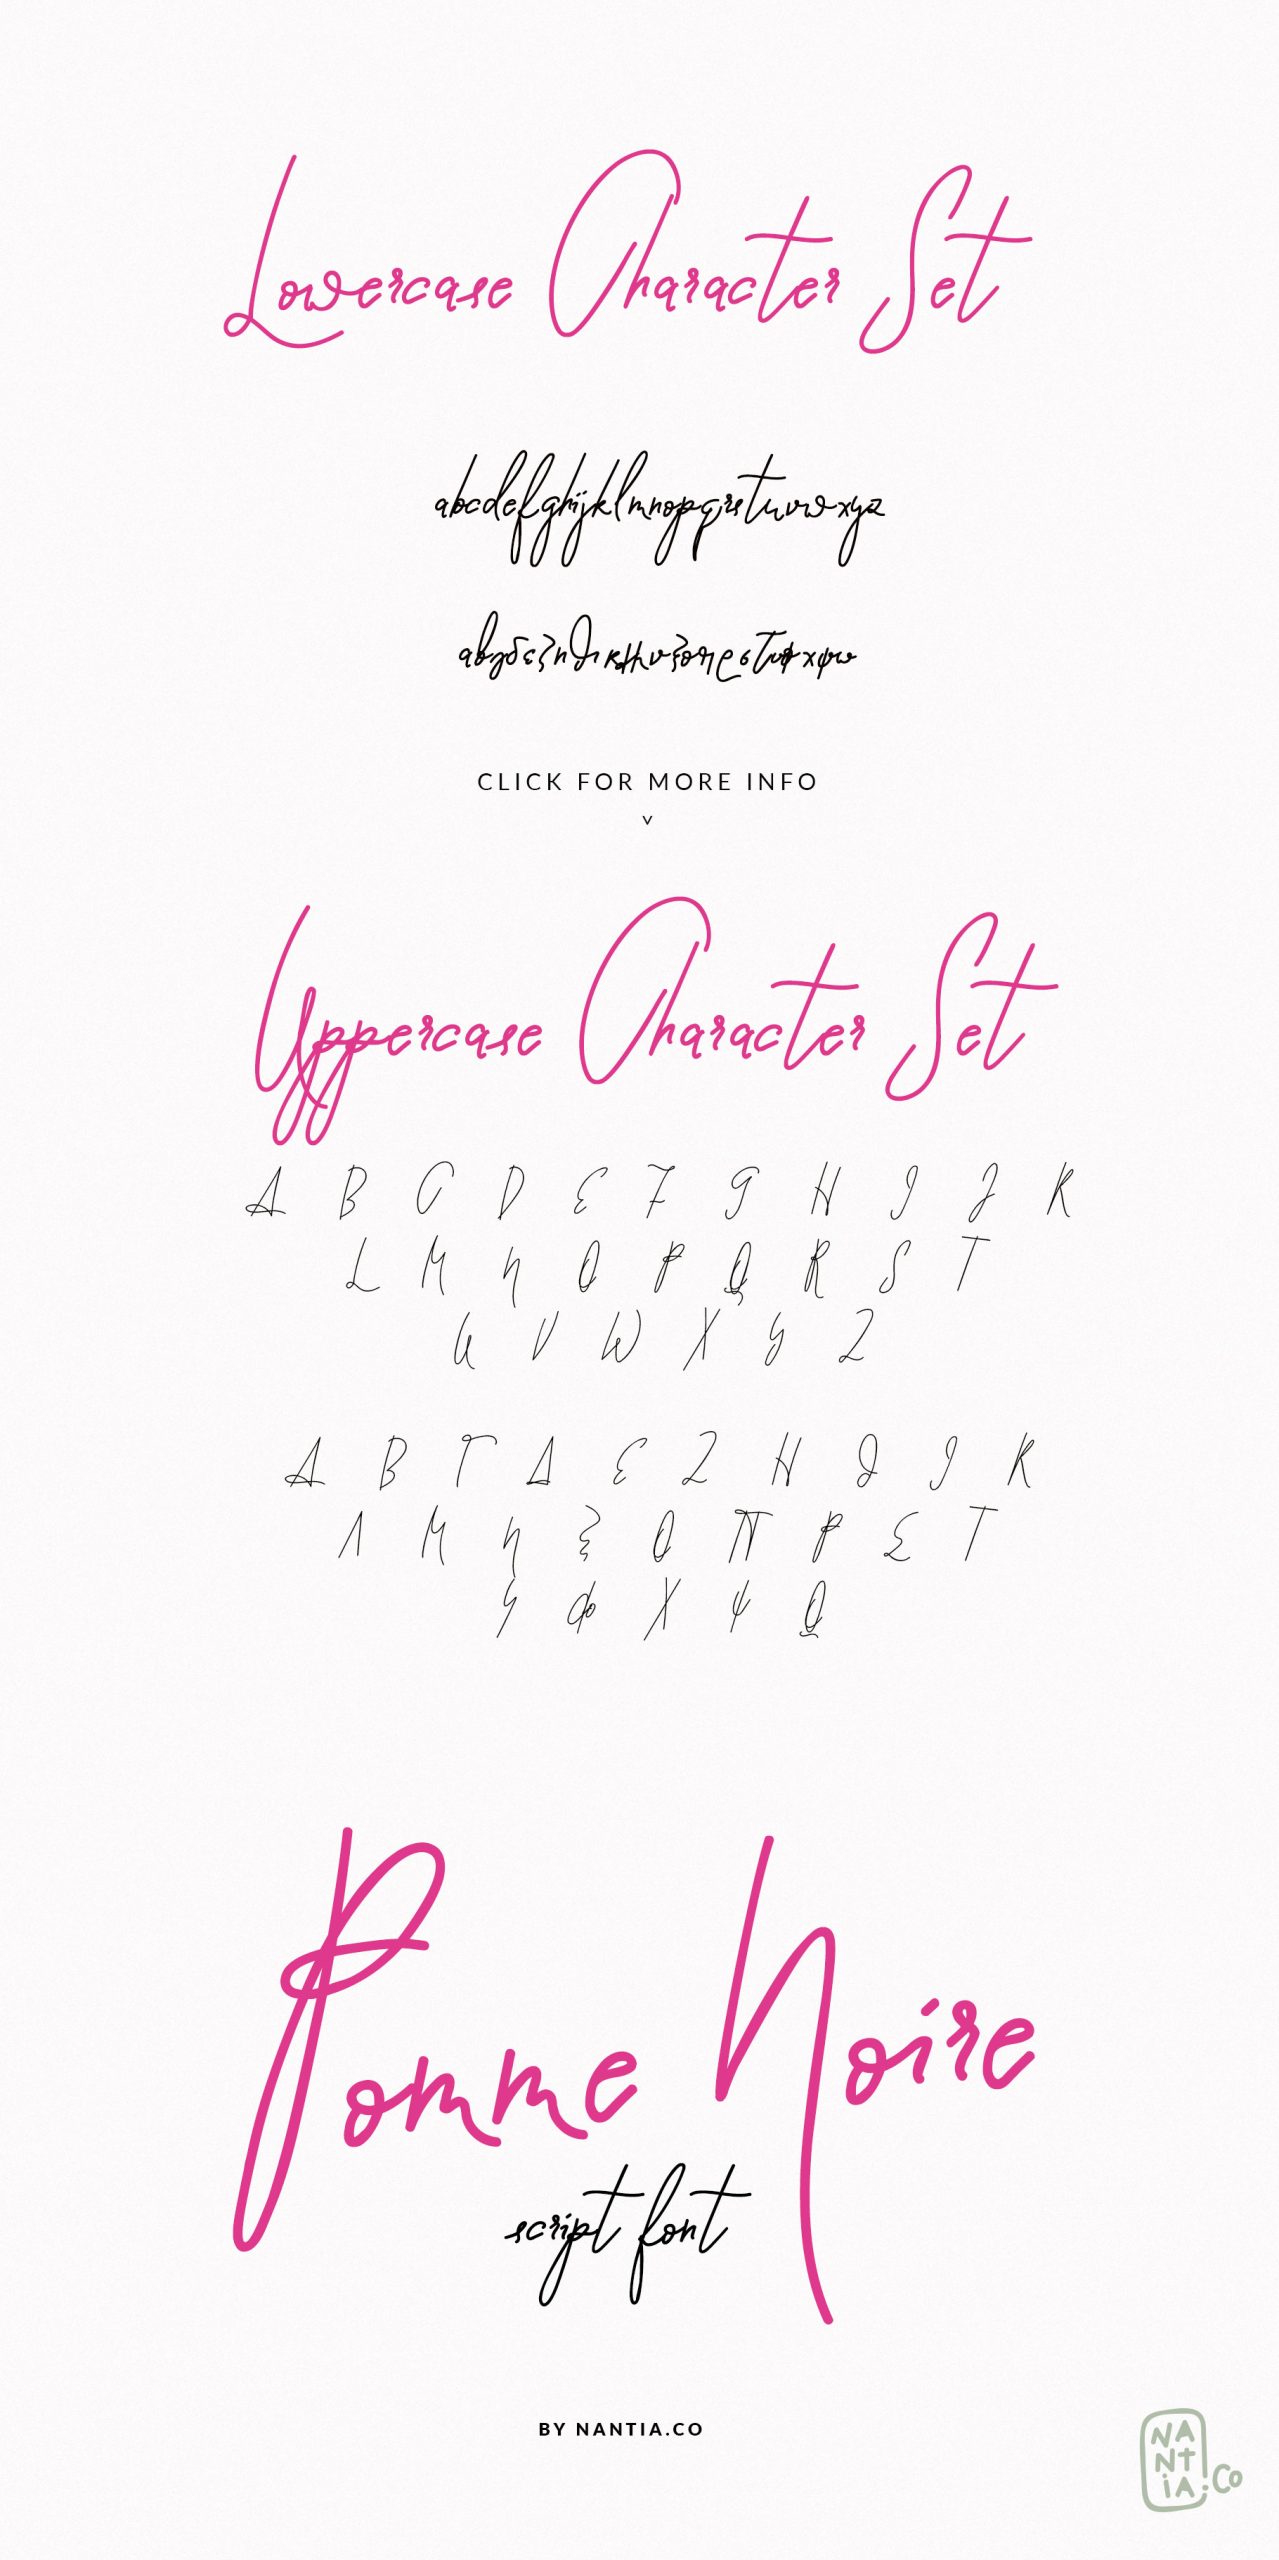 Lowercase Character Set
abcdefghijklmnopqrstuvwxyz
αβγδεζηθικλμνξοπρστυφχψω
CLICK FOR MORE INFO
Uppercase Character Set
A B C D E F G H I J K
L M N O P Q R S T
U V W X Y Z
Α Β Γ Δ Ε Ζ Η Θ Ι Κ
Λ Μ Ν Ξ Ο Π Ρ Σ Τ
Υ Φ Χ Ψ Ω
Pomme Noire
script font
BY NANTIA.CO
NA
NT
iA.Co